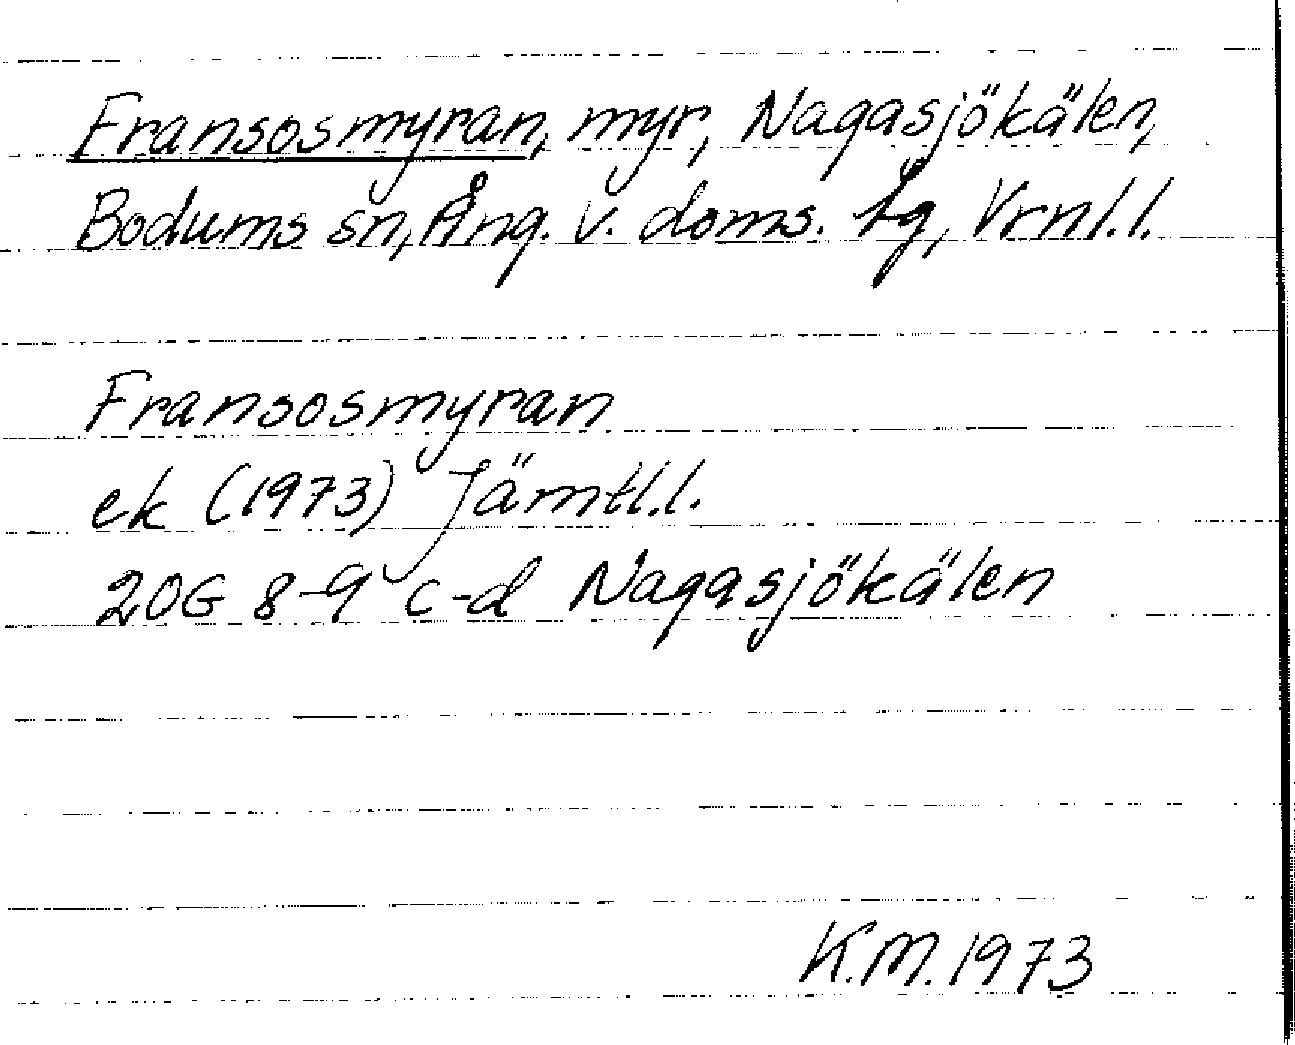 Fransosmyran, myr, Nagasjökälen,
Bodums sn, Ång. v. doms. lg, Vrnl.l.
Fransosmyran
ek (1973) Jämtl.l.
20G 8-9 c-d Nagasjökälen
K.M. 1973